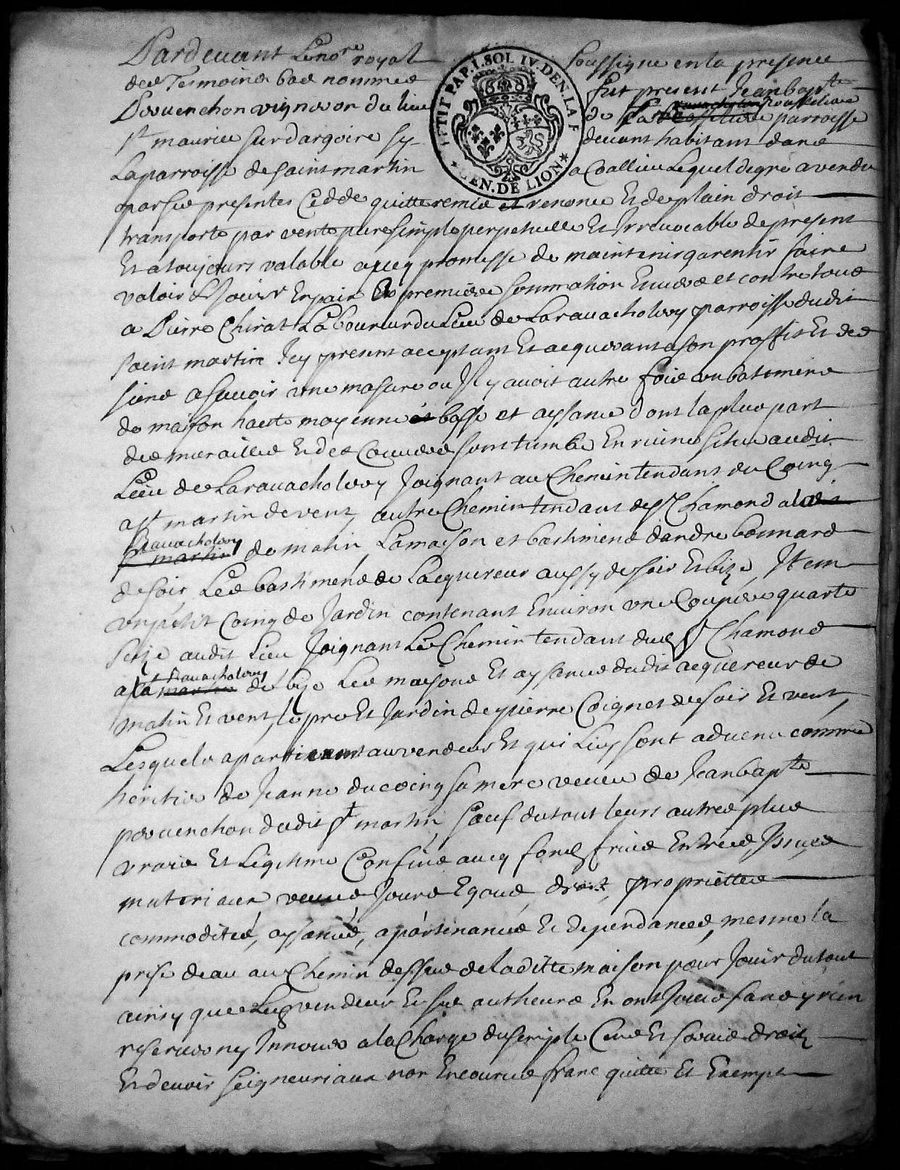 PETIT PAP. 1. SOL IV DEN. LA F
GEN. DE LION
Pardevant le no.re royal soussigne en la presence
des Tesmoins bas nommes fut present Jean bap.te
vigneron du lieu de parroisse
st. maurice sur dargoire sy devant habitant dans
La parroisse de saint martin a Coallieu Lequel de gre a vendu
par ses presentes Cedde quitte remis et renonce Et de plain droit
transporte par vente pure simple perpetuelle Et Irrevocable de present
Et a toujours valable avecq promesse de maintenir garentir faire
valoir Et Jouir En paix premiere sommation Envers et contre tous
a Pierre Chirat Laboureur du Lieu de Laravacholery parroisse dudit
saint martin Icy present acceptant Et acquerant a son proffit Et des
siens a scavoir une masure ou Il y avoit autre fois un batiment
de maison haute moyenne et basse et aysance dont la plus part
des murailles Et des Couvers sont tumbe En ruine situe audit
Lieu de Laravacholery Joignant au Chemin tendant du Coing
a st. martin de vent, autre Chemin tendant de st. Chamond a la
Ravacholery
martin de matin La maison et bastiment dandre bonnard
de soir Les bastiments de Lacquereur aussy de soir Et bize, Item
un petit Coing de Jardin contenant Environ une Coupee quarte
seize audit Lieu Joignant Le Chemin tendant dud. st. Chamond
Ravacholery
a la martin de bize Les maisons Et aysance dudit acquereur de
matin Et vent, le pre Et Jardin de pierre Coignet de soir Et vent,
Lesquels apartienent au vendeur Et qui Luy sont advenu comme
heritier de Jeanne ducoing sa mere veuve de Jean bap.te
dudit st. martin, sauf du tout leurs autres plus
vrais Et Legitime Confins avecq fons fruis Entrees Issues
materiaux veues Jours Egous, droit, proprietees
commodites, aysances, apartenances Et dependances, mesme la
prise deau au Chemin dessus de la ditte maison pour Jouir du tout
ainsy que Ledit vendeur Et ses autheurs En ont Jouis sans y rien
reserver ny Innover a la Charge du simple Cens Et servis droits
Et devoir seigneuriaux non Encourus franc quitte Et Exempt